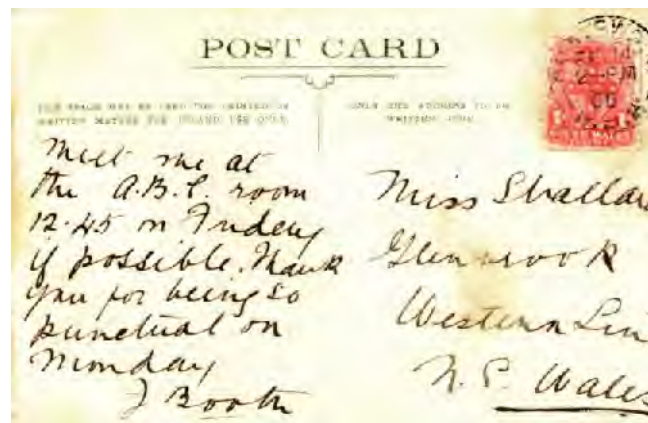 POST CARD
THIS SPACE MAY BE USED FOR PRINTED OR
WRITTEN MATTER FOR INLAND USE ONLY.
ONLY THE ADDRESS TO BE
WRITTEN HERE.
2-PM
Meet me at
the A.B.C. room
12.45 on Friday
if possible. Thank
you for being so
punctual on
Monday
J Booth
Miss
Glenbrook
Western
N. S. Wales